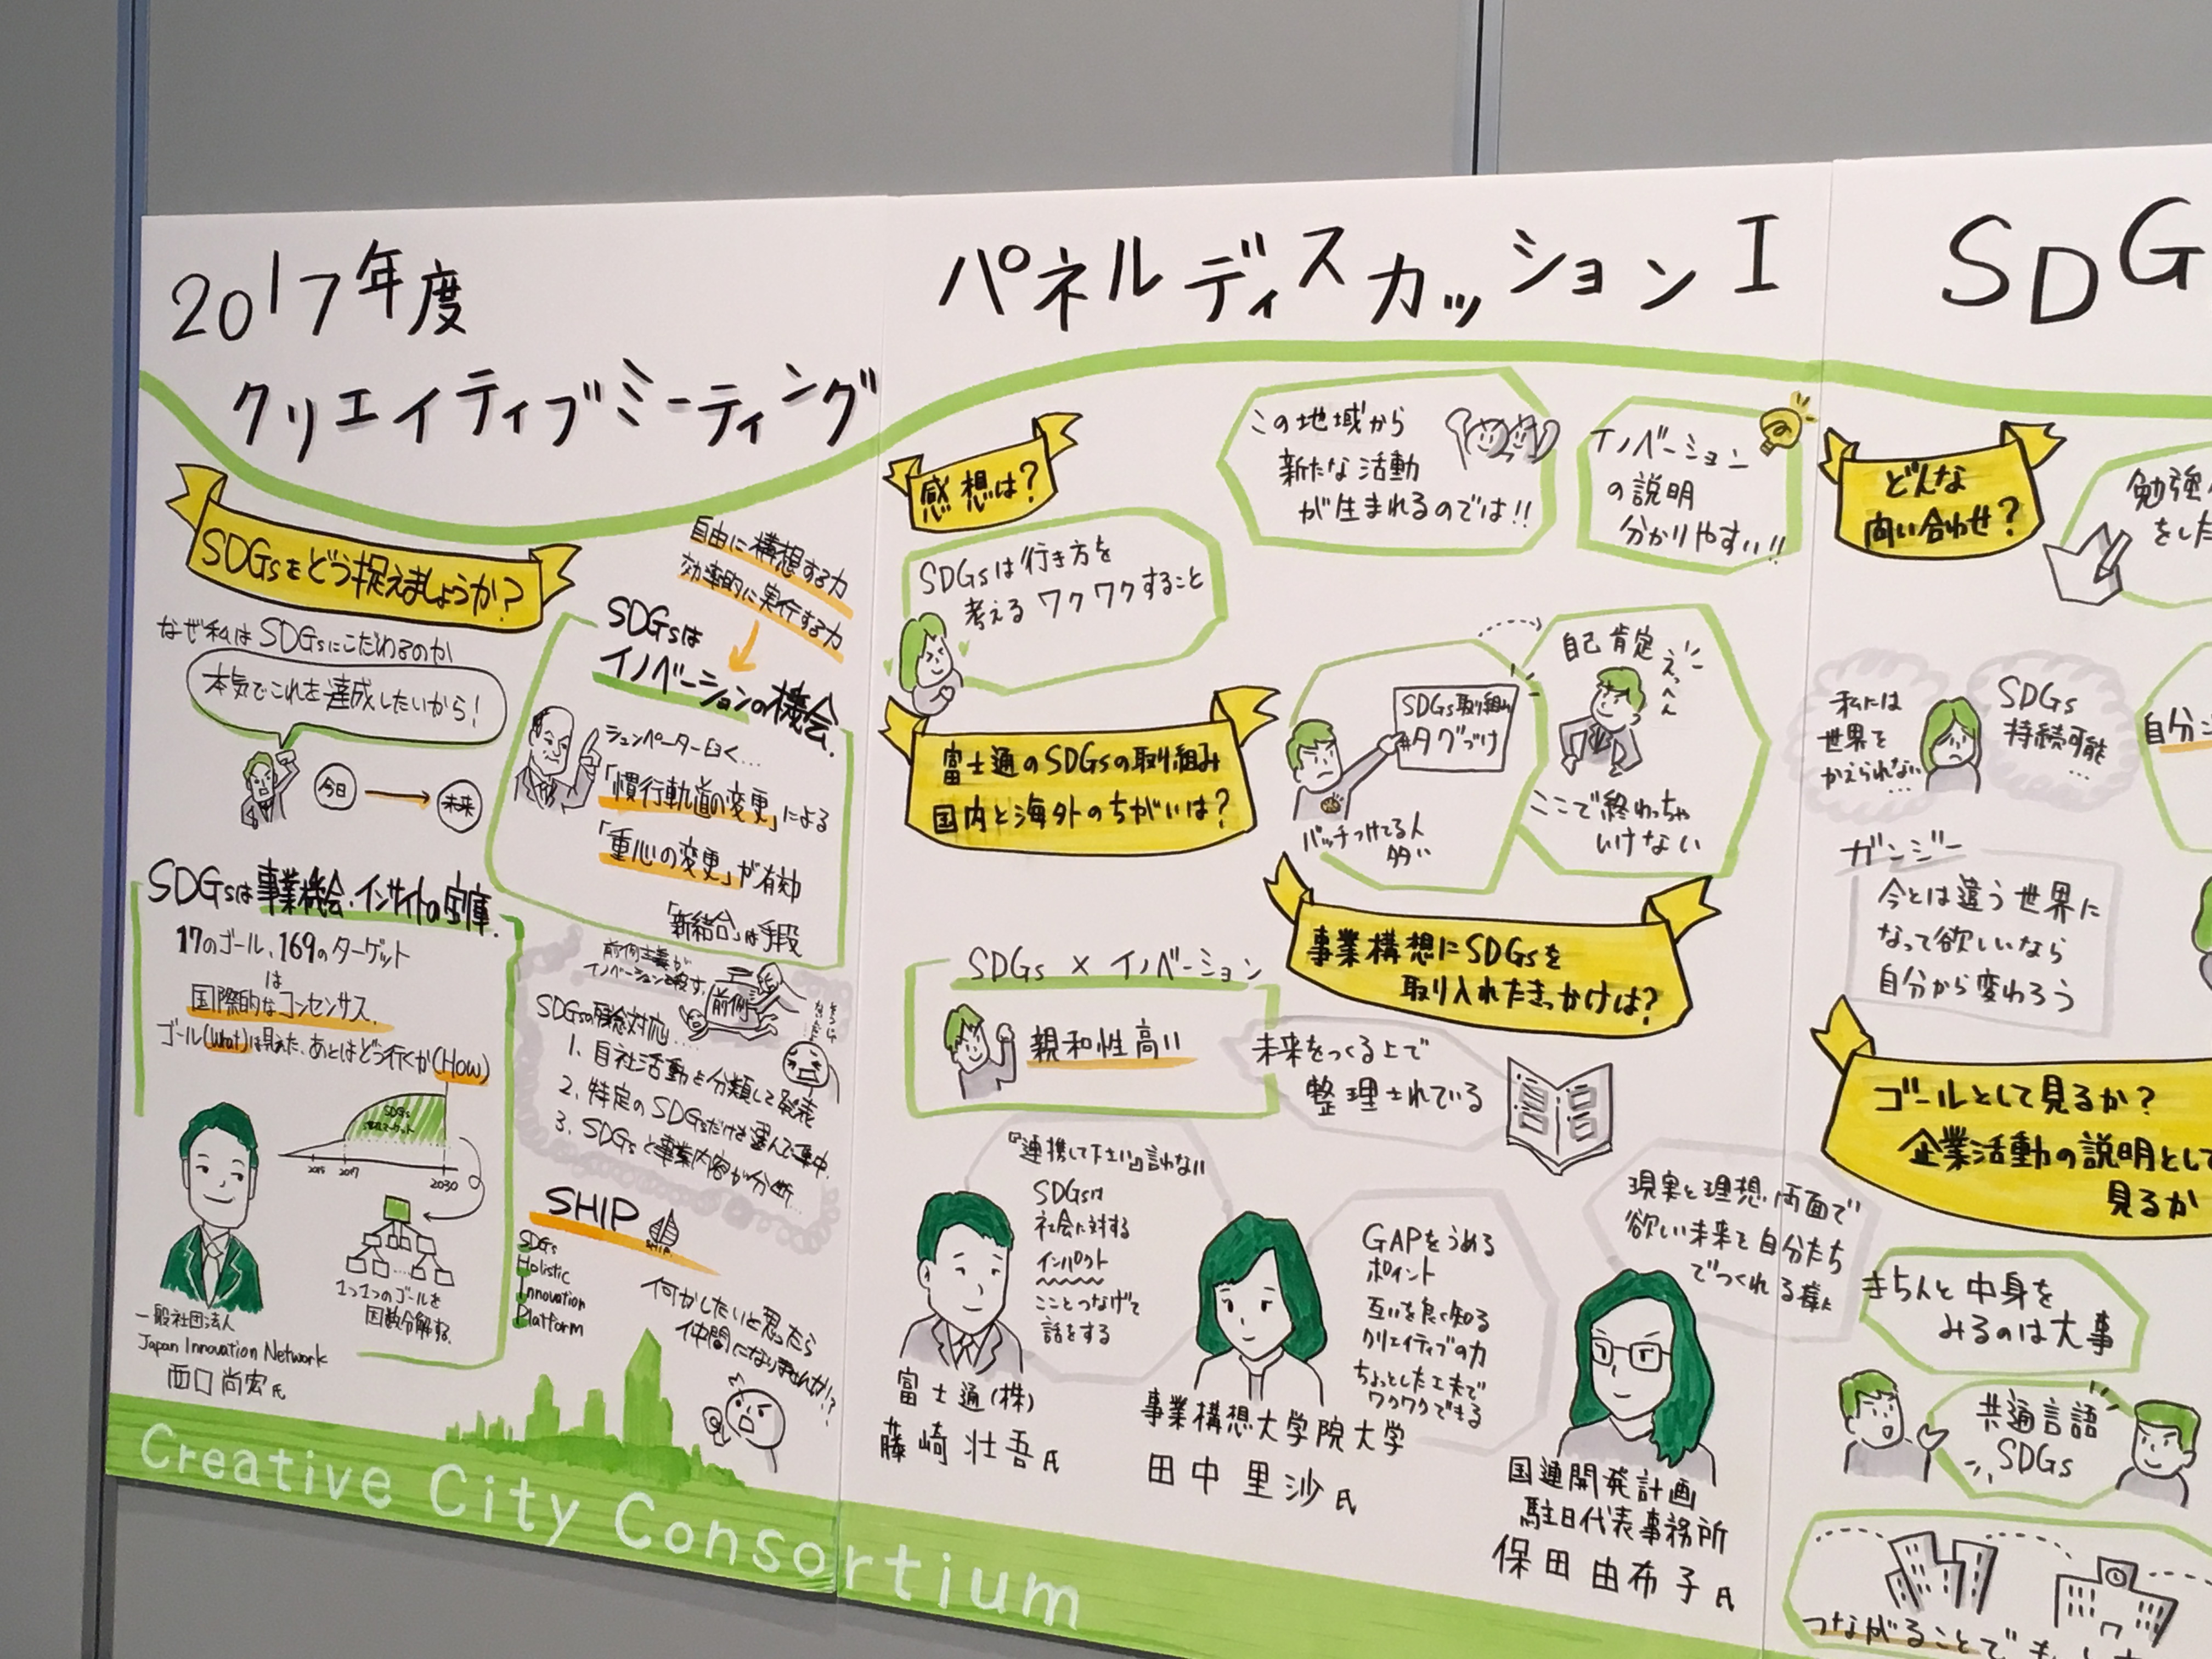 2017年度
クリエイティブミーティング
SDGsをどう捉えましょうか?
なぜ私はSDGsにこだわるのか
本気でこれを達成したいから!
今日
未来
SDGsは事業機会、インサイトの宝庫.
17のゴール、169のターゲット
は
国際的なコンセンサス.
ゴール(What)は見えた、あとはどう行くか(How)
SDGs
2015
2017
2030
1つ1つのゴールを
因数分解する.
一般社団法人
Japan Innovation Network
西口尚宏氏
自由に構想する力
効率的に実行する力
SDGsは
イノベーションの機会.
シュンペーター曰く…
「慣行軌道の変更」による
「重心の変更」が有効
「新結合」は手段
前例主義が
イノベーションを殺す.
前例
SDGsの残念対応....
1. 自社活動を分類して発表
2. 特定のSDGsだけを選んで集中.
3. SDGsと事業内容が分断...
SHIP
SHIP
SDGs
Holistic
Innovation
Platform
何かしたいと思ったら
仲間になりませんか!?
Creative City Consortium
パネルディスカッションI
感想は?
SDGsは行き方を
考えるワクワクすること
この地域から
新たな活動
が生まれるのでは!!
イノベーション
の説明
分かりやすい!!
富士通のSDGsの取り組み
国内と海外のちがいは?
SDGs取り組み
#タグづけ
バッチつけてる人
多い
自己肯定
えっへん
ここで終わっちゃ
いけない
SDGs×イノベーション
親和性高い
事業構想にSDGsを
取り入れたきっかけは?
未来をつくる上で
整理されている
『連携して下さい』言わない
SDGsは
社会に対する
インパクト
こことつなげて
話をする
GAPをうめる
ポイント
互いを良く知る
クリエイティブの力
ちょっとした工夫で
ワクワクできる
現実と理想両面で
欲しい未来を自分たち
でつくれる様に
富士通(株)
藤崎壮吾氏
事業構想大学院大学
田中里沙氏
国連開発計画
駐日代表事務所
保田由布子氏
SDG
どんな
問い合わせ?
勉強
をした
私には
世界を
かえられない…
SDGs
持続可能
…
自分
ガンジー
今とは違う世界に
なって欲しいなら
自分から変わろう
ゴールとして見るか?
企業活動の説明として
見るか
きちんと中身を
みるのは大事
共通言語
SDGs
つながることで